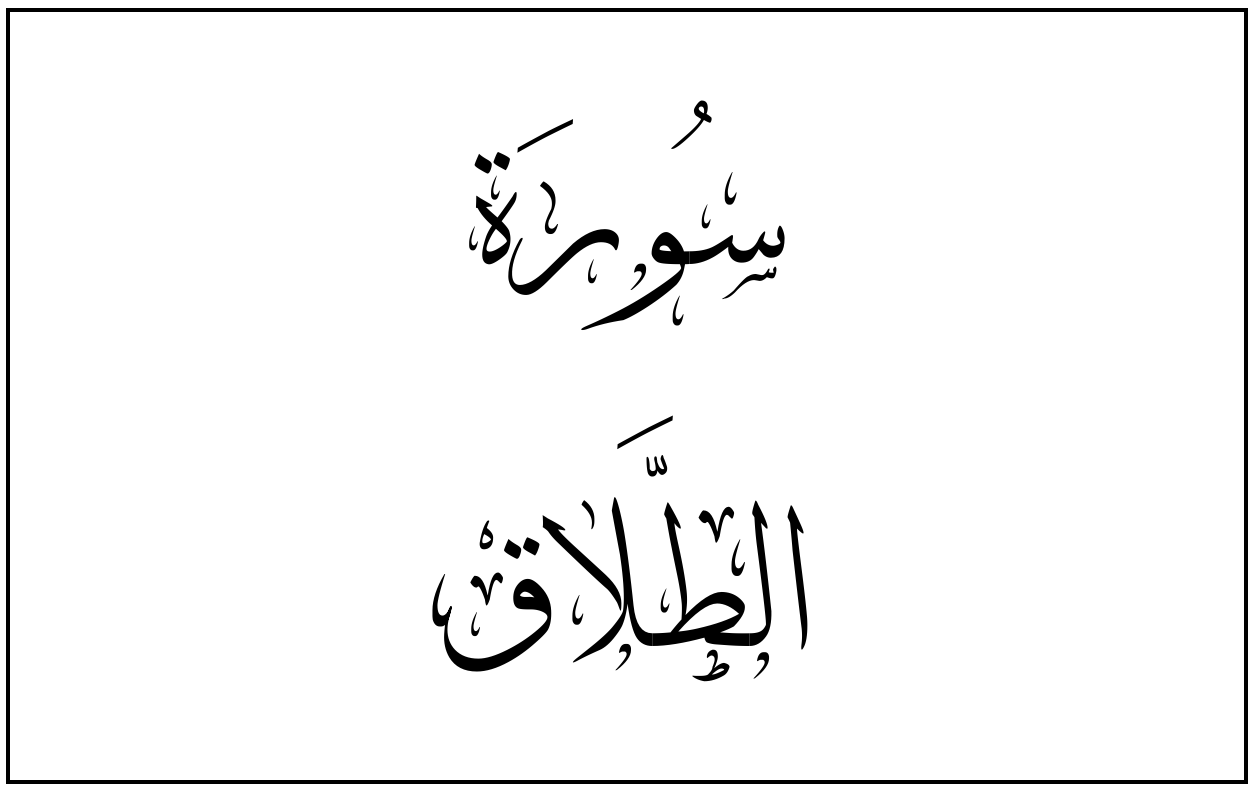 سُورَة
الطَّلَاق